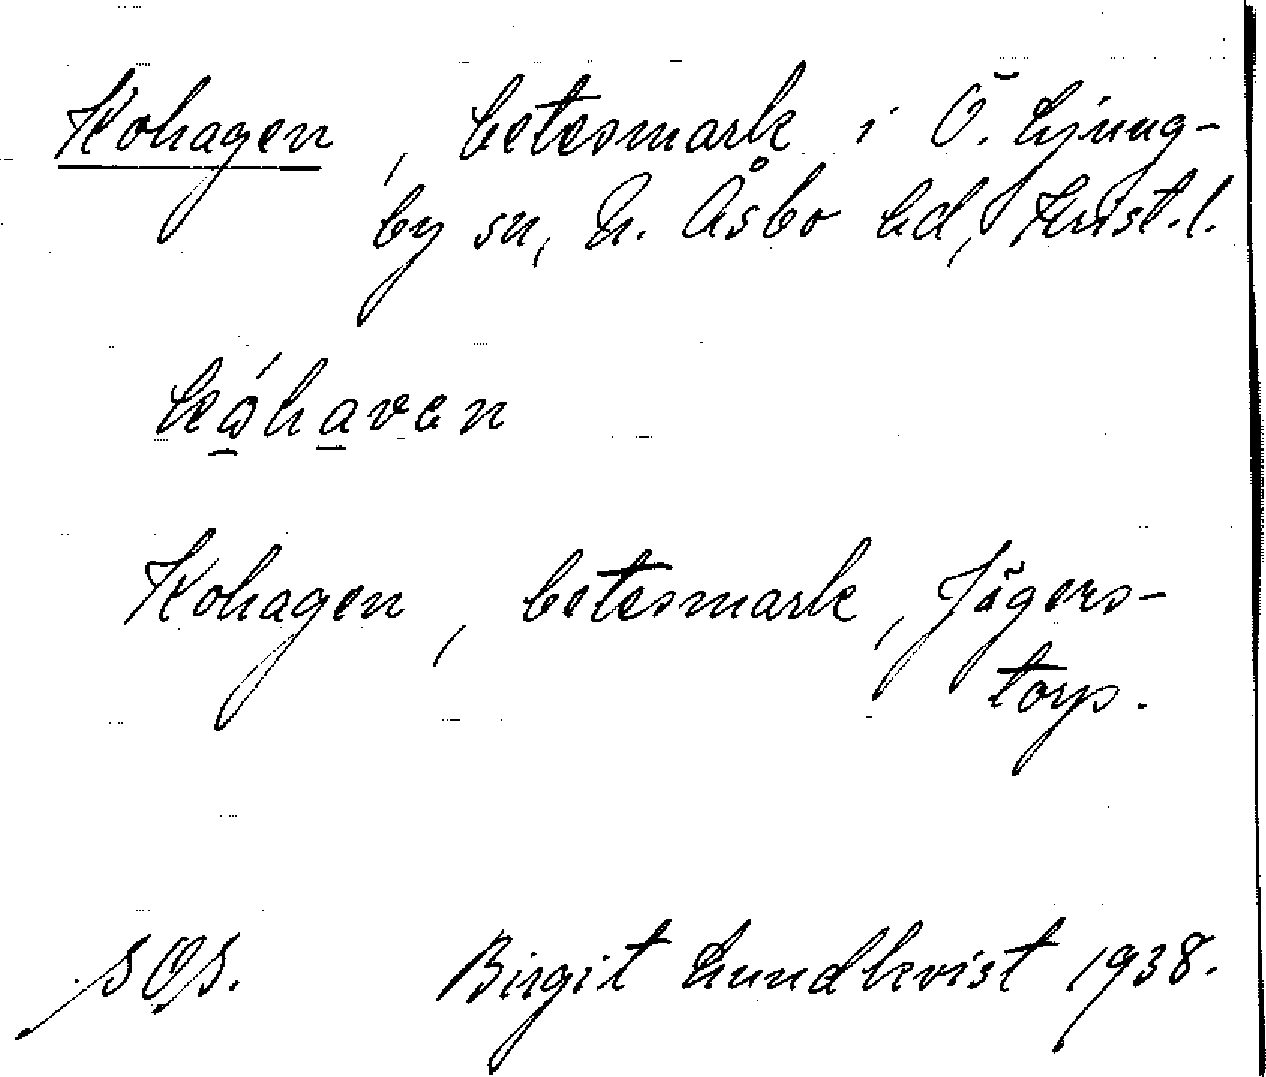 Kohagen, betesmark i Ö. Ljung-
by sn, N. Åsbo hd, Krist. l.
kǻhavan
Kohagen, betesmark, Jägers-
torp.
SOS. Birgit Lundkvist 1938.